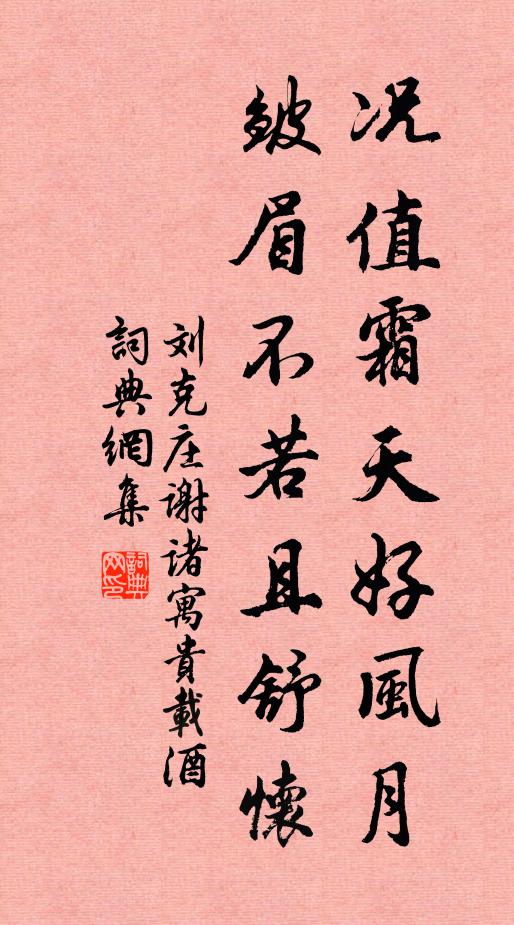 况值霜天好風月
皴眉不若且舒懷
刘克庄谢诸寓貴載酒
詞典網集
詞典网印